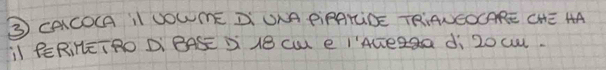 ③ CALCOLA il VOLUME Di UNA PiRAMiDE TRiANGOLARE CHE HA
il PERiMETRO Di BASE Di 18 cm e l'Altezza di 20 cm.